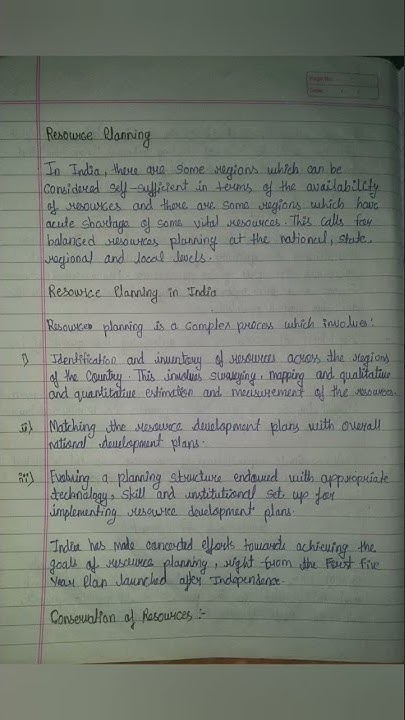 Page No.
Date
Resource Planning
In India, there are some regions which can be
Considered self-sufficient in terms of the availability
of resources and there are some regions which have
acute shortage of some vital resources. This calls for
balanced resources planning at the national, state
regional and local levels.
Resource Planning in India
Resources planning is a complex process which involves:
i) Identification and inventory of resources across the regions
of the Country. This involves surveying, mapping and qualitative
and quantitative estimation and measurement of the resources.
ii) Matching the resource development plans with overall
national development plans.
iii) Evolving a planning structure endowed with appropriate
technology, skill and institutional set up for
implementing resource development plans.
India has made concerted efforts towards achieving the
goals of resource planning, right from the First Five
Year Plan launched after Independence.
Conservation of Resources :-